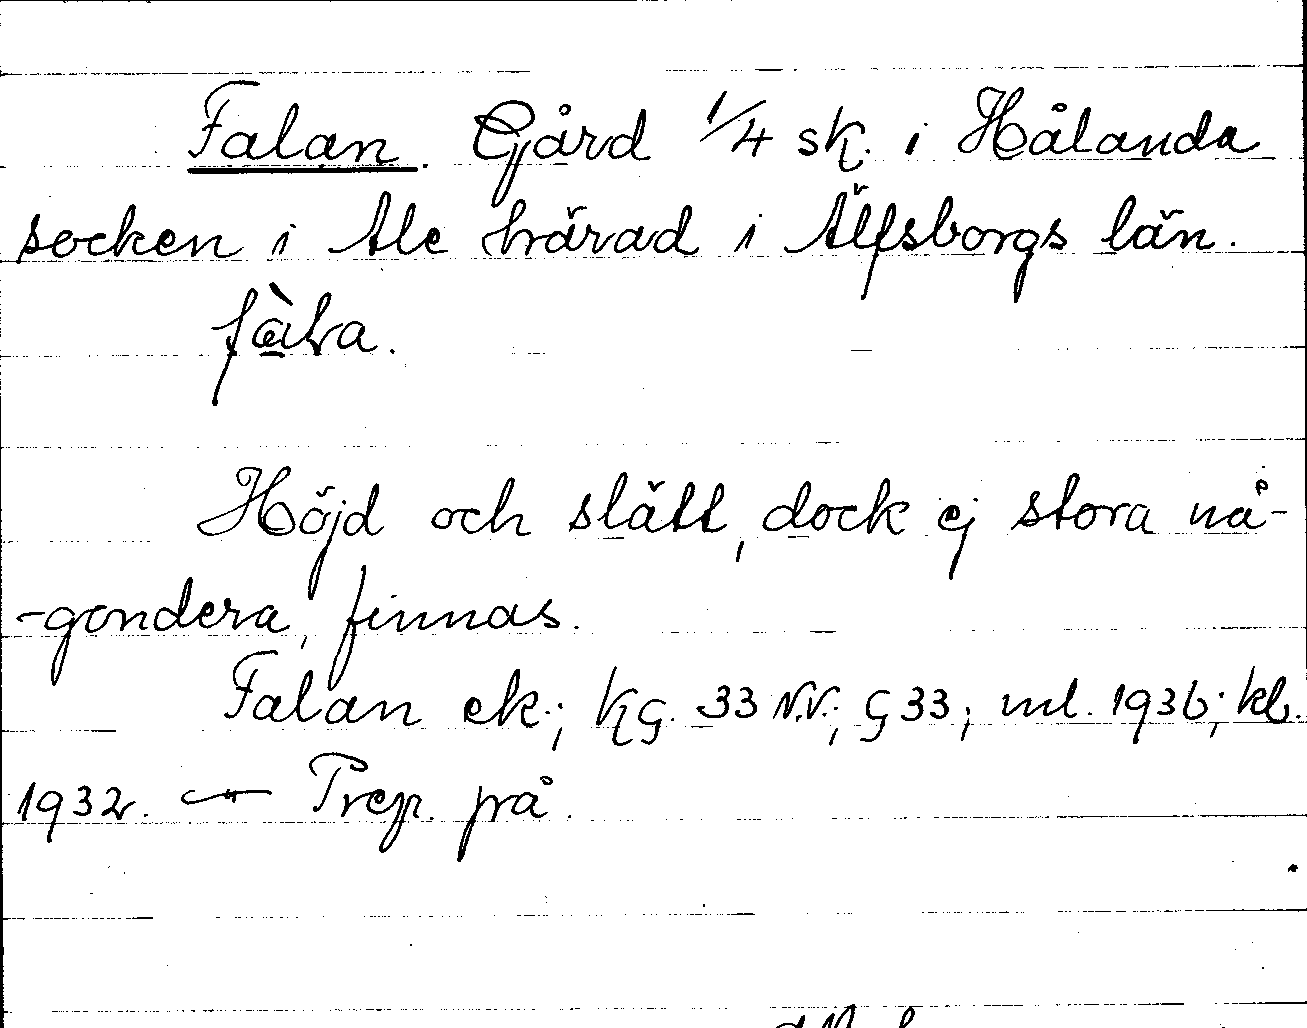 Falan. Gård 1/4 sk. i Hålanda
socken i Ale härad i Älfsborgs län.
Höjd och slätt, dock ej stora nå-
-gondera, finnas.
Falan ek.; KG. 33 N.V.; G 33; ml. 1936; kb.
1932. — Prep. på.